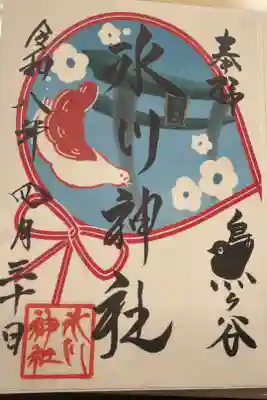 奉拝
烏ヶ谷
氷川神社
令和八年四月三十日
氷川
神社